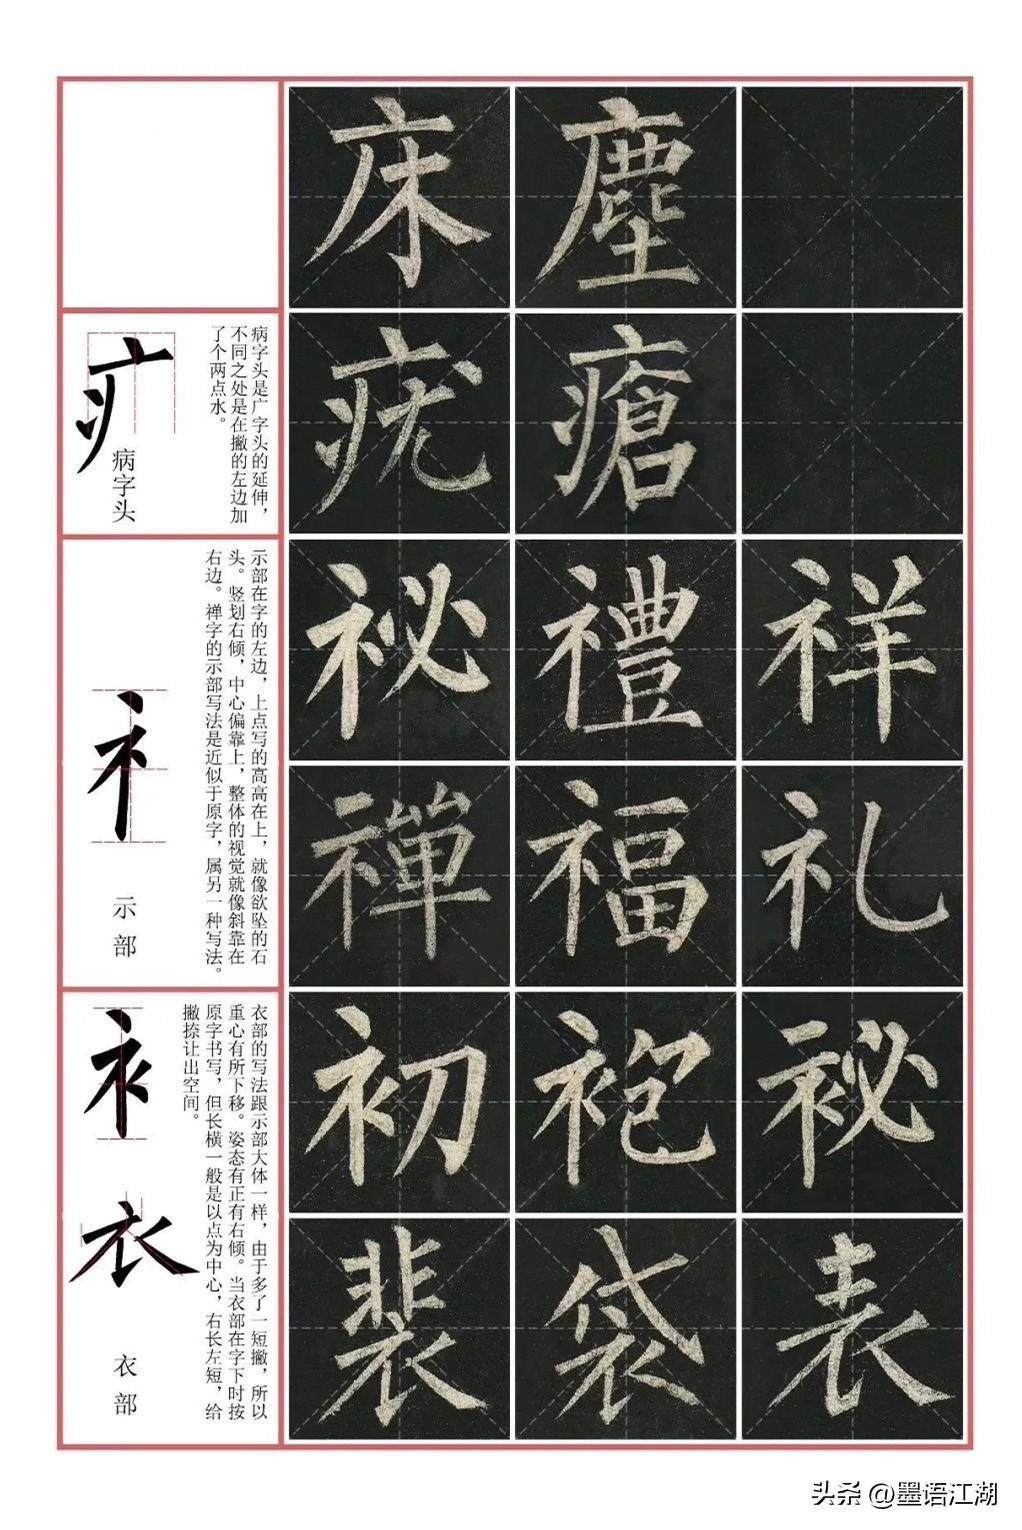 床 塵
病字头是广字头的延伸，
不同之处是在撇的左边加
了个两点水。
疒
病字头
疣 瘡
示部在字的左边，上点写的高高在上，就像欲坠的石
头。竖划右倾，中心偏靠上，整体的视觉就像斜靠在
右边。禅字的示部写法是近似于原字，属另一种写法。
礻
示部
祕 禮 祥
禪 福 礼
衣部的写法跟示部大体一样，由于多了一短撇，所以
重心有所下移。姿态有正有右倾。当衣部在字下时按
原字书写，但长横一般是以点为中心，右长左短，给
撇捺让出空间。
衤
衣
衣部
初 袍 祕
裴 袋 表
头条 @墨语江湖